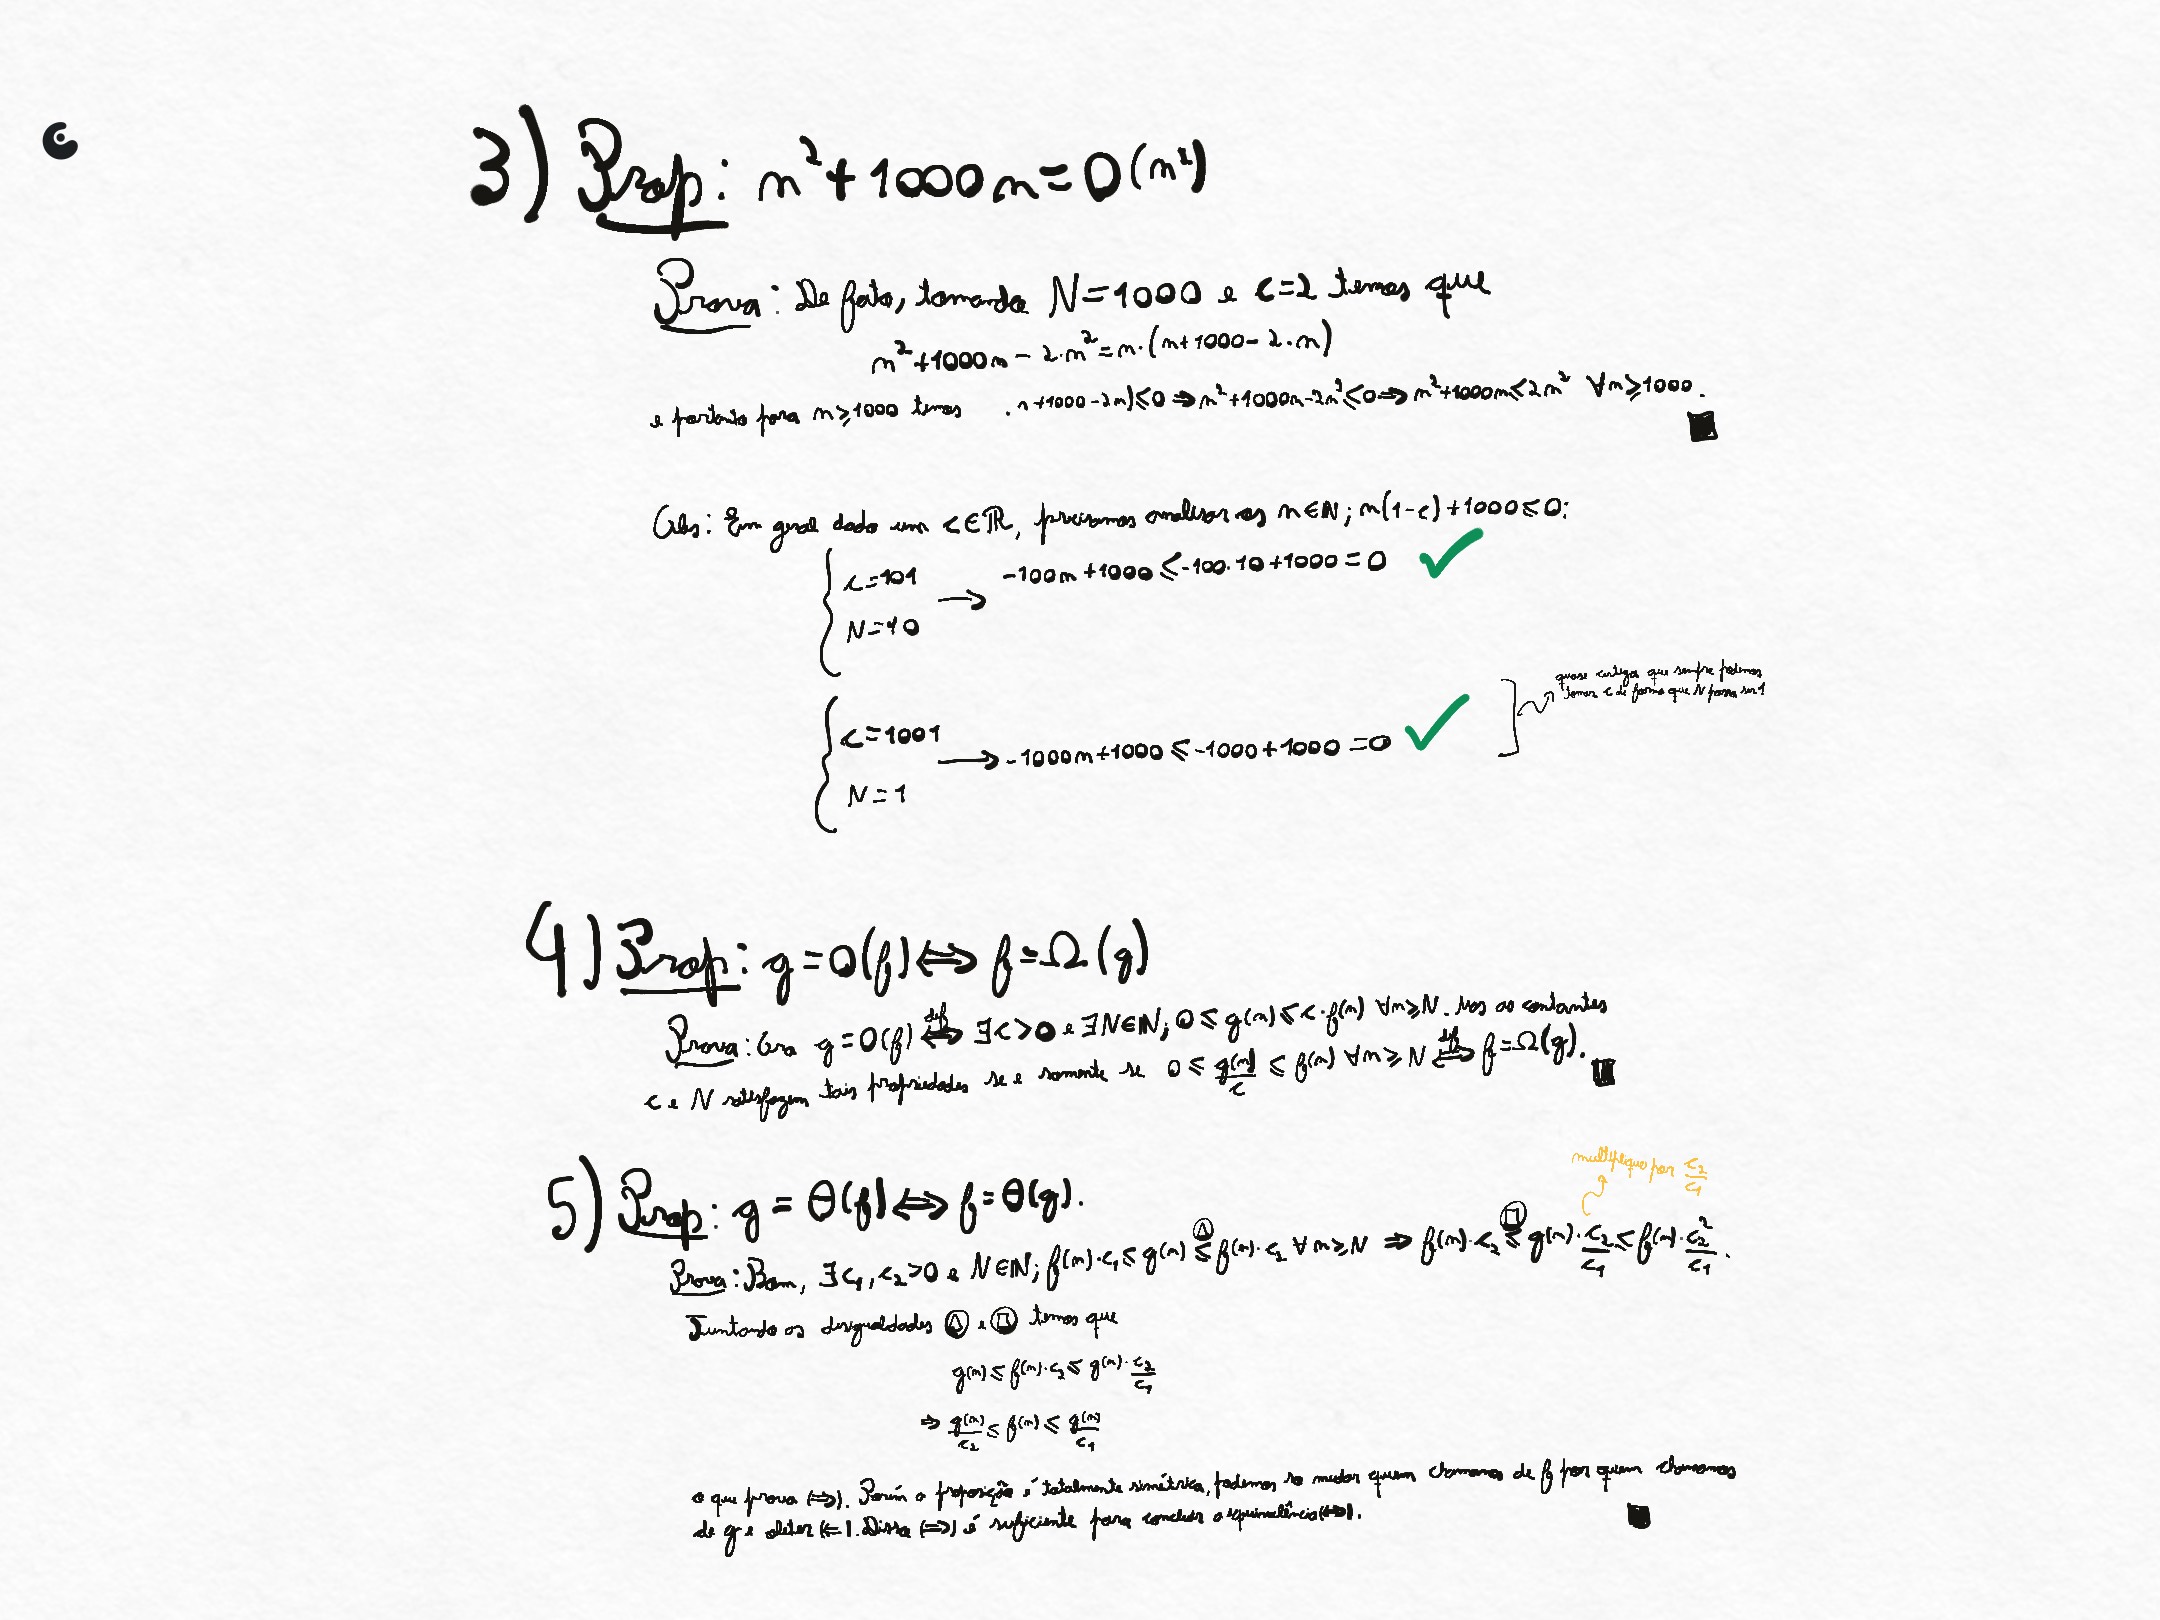 3) Prop: n²+1000n=O(n²)
Prova: De fato, tomando N=1000 e c=2 temos que
n²+1000n-2·n²=n·(n+1000-2·n)
e portanto para n≥1000 temos n+1000-2n)≤0⇒n²+1000n-2n²≤0⇒n²+1000n≤2n² ∀n≥1000.
Obs: Em geral dado um c∈ℝ, precisamos analisar os n∈ℕ; n(1-c)+1000≤0:
c=101 → -100n+1000≤-100·10+1000=0 ✓
N=10
quase certeza que sempre podemos
tomar c de forma que N possa ser 1
c=1001 → -1000n+1000≤-1000+1000=0 ✓
N=1
4) Prop: g=O(f)⇔f=Ω(g)
Prova: Ora g=O(f) ⇔(def) ∃c>0 e ∃N∈ℕ; 0≤g(n)≤c·f(n) ∀n≥N. Mas as contantes
c e N satisfazem tais propriedades se e somente se 0≤g(n)/c≤f(n) ∀n≥N ⇔(def) f=Ω(g).
5) Prop: g=θ(f)⇔f=θ(g).
multiplique por c₂/c₁
Prova: Bom, ∃c₁,c₂>0 e N∈ℕ; f(n)·c₁≤g(n) ≤(△) f(n)·c₂ ∀n≥N ⇒ f(n)·c₂ ≤(□) g(n)·c₂/c₁≤f(n)·c₂²/c₁.
Juntando as desigualdades △ e □ temos que
g(n)≤f(n)·c₂≤g(n)·c₂/c₁
⇒ g(n)/c₂≤f(n)≤g(n)/c₁
o que prova (⇒). Porém a proposição é totalmente simétrica, podemos so mudar quem chamamos de f por quem chamamos
de g e obter (⇐). Dissa (⇒) é suficiente para concluir a equivalência(⇔).